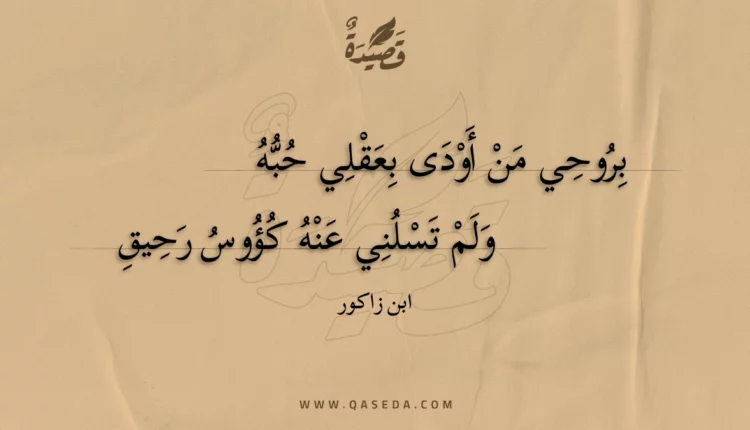 قَصِيدَةٌ
بِرُوحِي مَنْ أَوْدَى بِعَقْلِي حُبُّهُ
وَلَمْ تَسْلُنِي عَنْهُ كُؤُوسُ رَحِيقِ
ابن زاكور
WWW.QASEDA.COM